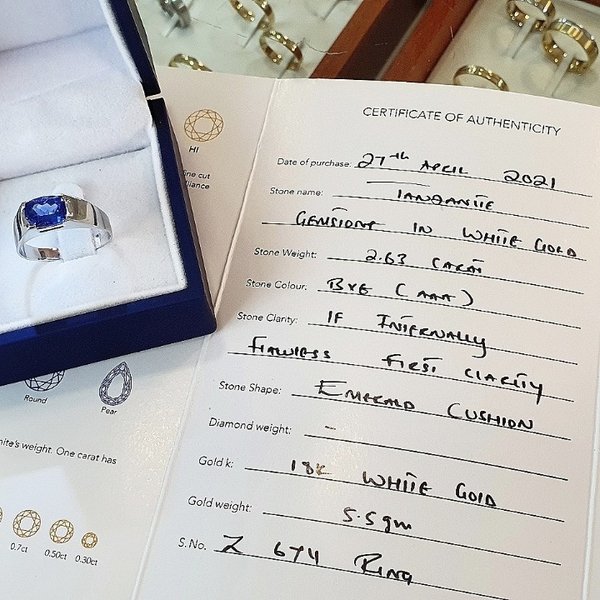 HI
ine cut
liance
Round
Pear
nite's weight. One carat has
0.7ct 0.50ct 0.30ct
CERTIFICATE OF AUTHENTICITY
Date of purchase: 27th APRIL 2021
Stone name: TANZANITE
GEMSTONE IN WHITE GOLD
Stone Weight: 2.63 CARAT
Stone Colour: BVE (AAA)
Stone Clarity: IF INTERNALLY
FLAWLESS FIRST CLARITY
Stone Shape: EMERALD CUSHION
Diamond weight: -
Gold k: 18K WHITE GOLD
Gold weight: 5.5gm
S.No. Z 674 RING